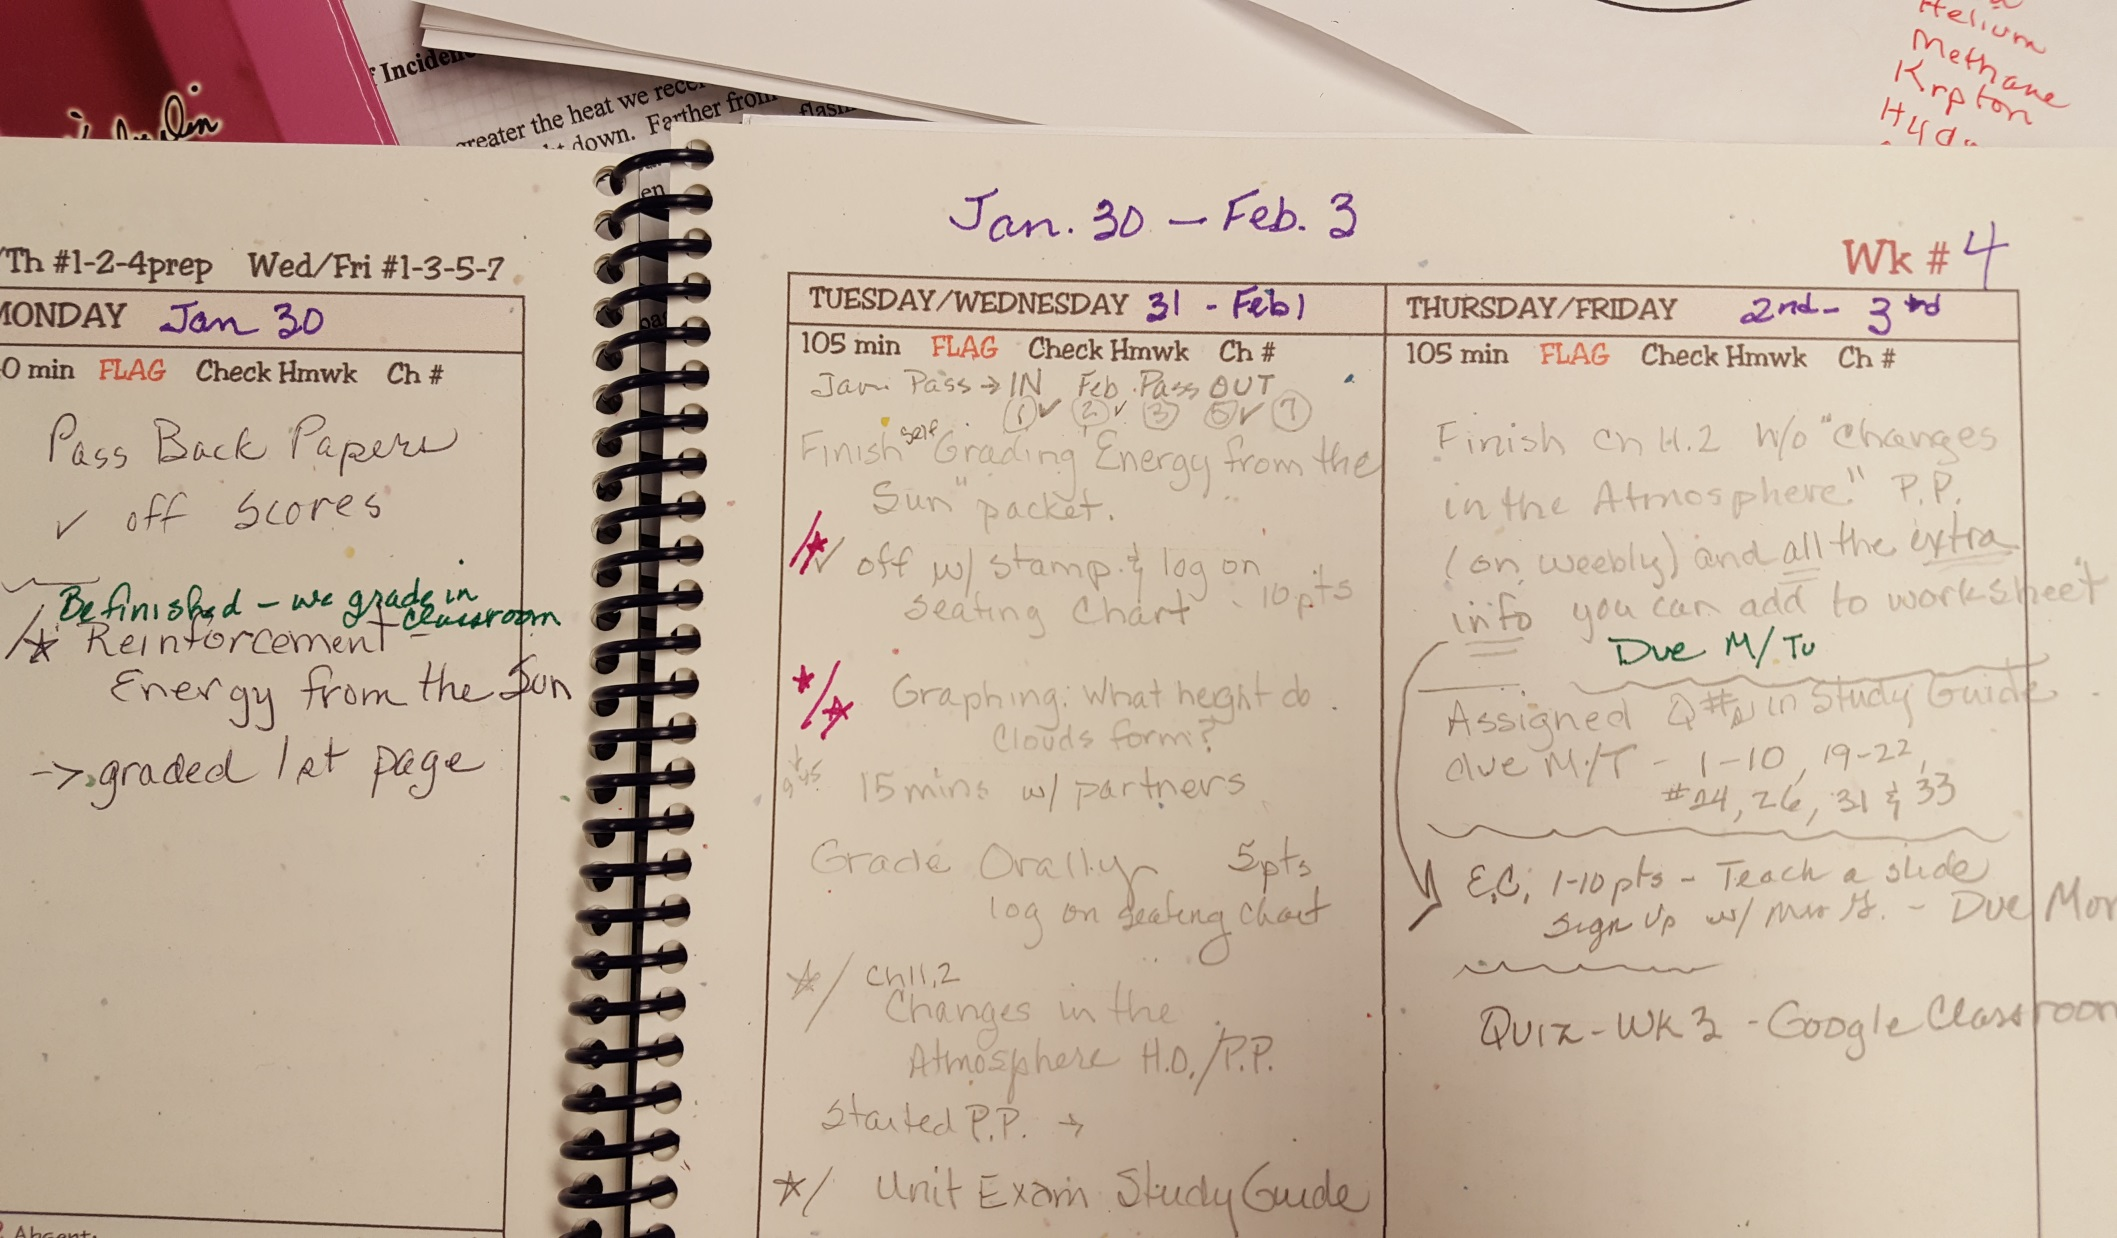 Incidence
greater the heat we rece
down. Farther from
flash
en
Helium
Methane
Krpton
Hyd
/Th #1-2-4prep Wed/Fri #1-3-5-7
MONDAY Jan 30
0 min FLAG Check Hmwk Ch #
Pass Back Papers
✓ off Scores
Be finished - we grade in
classroom
/☆ Reinforcement -
Energy from the Sun
-> graded 1st page
Absent:
Jan. 30 - Feb. 3
Wk # 4
TUESDAY/WEDNESDAY 31 - Feb 1
105 min FLAG Check Hmwk Ch #
Jan. Pass → IN Feb. Pass OUT
① ✓ ② ✓ ③ ⑤ ✓ ⑦
Finish self Grading "Energy from the
Sun" packet.
/☆ ✓ off w/ stamp & log on
seating Chart - 10 pts
☆/☆ Graphing: What height do
Clouds form?
15 mins w/ partners
Grade Orally 5pts
log on seating chart
☆/ Ch 11.2
Changes in the
Atmosphere H.O./P.P.
Started P.P. →
☆/ Unit Exam Study Guide
THURSDAY/FRIDAY 2nd - 3rd
105 min FLAG Check Hmwk Ch #
Finish ch 11.2 H/o "Changes
in the Atmosphere" P.P.
(on weebly) and all the extra
info you can add to worksheet
Due M/Tu
Assigned Q #s in Study Guide
due M/T - 1-10, 19-22,
#24, 26, 31 & 33
E.C: 1-10 pts - Teach a slide
sign up w/ Mrs G. - Due Mon
Quiz - WK 3 - Google Classroom